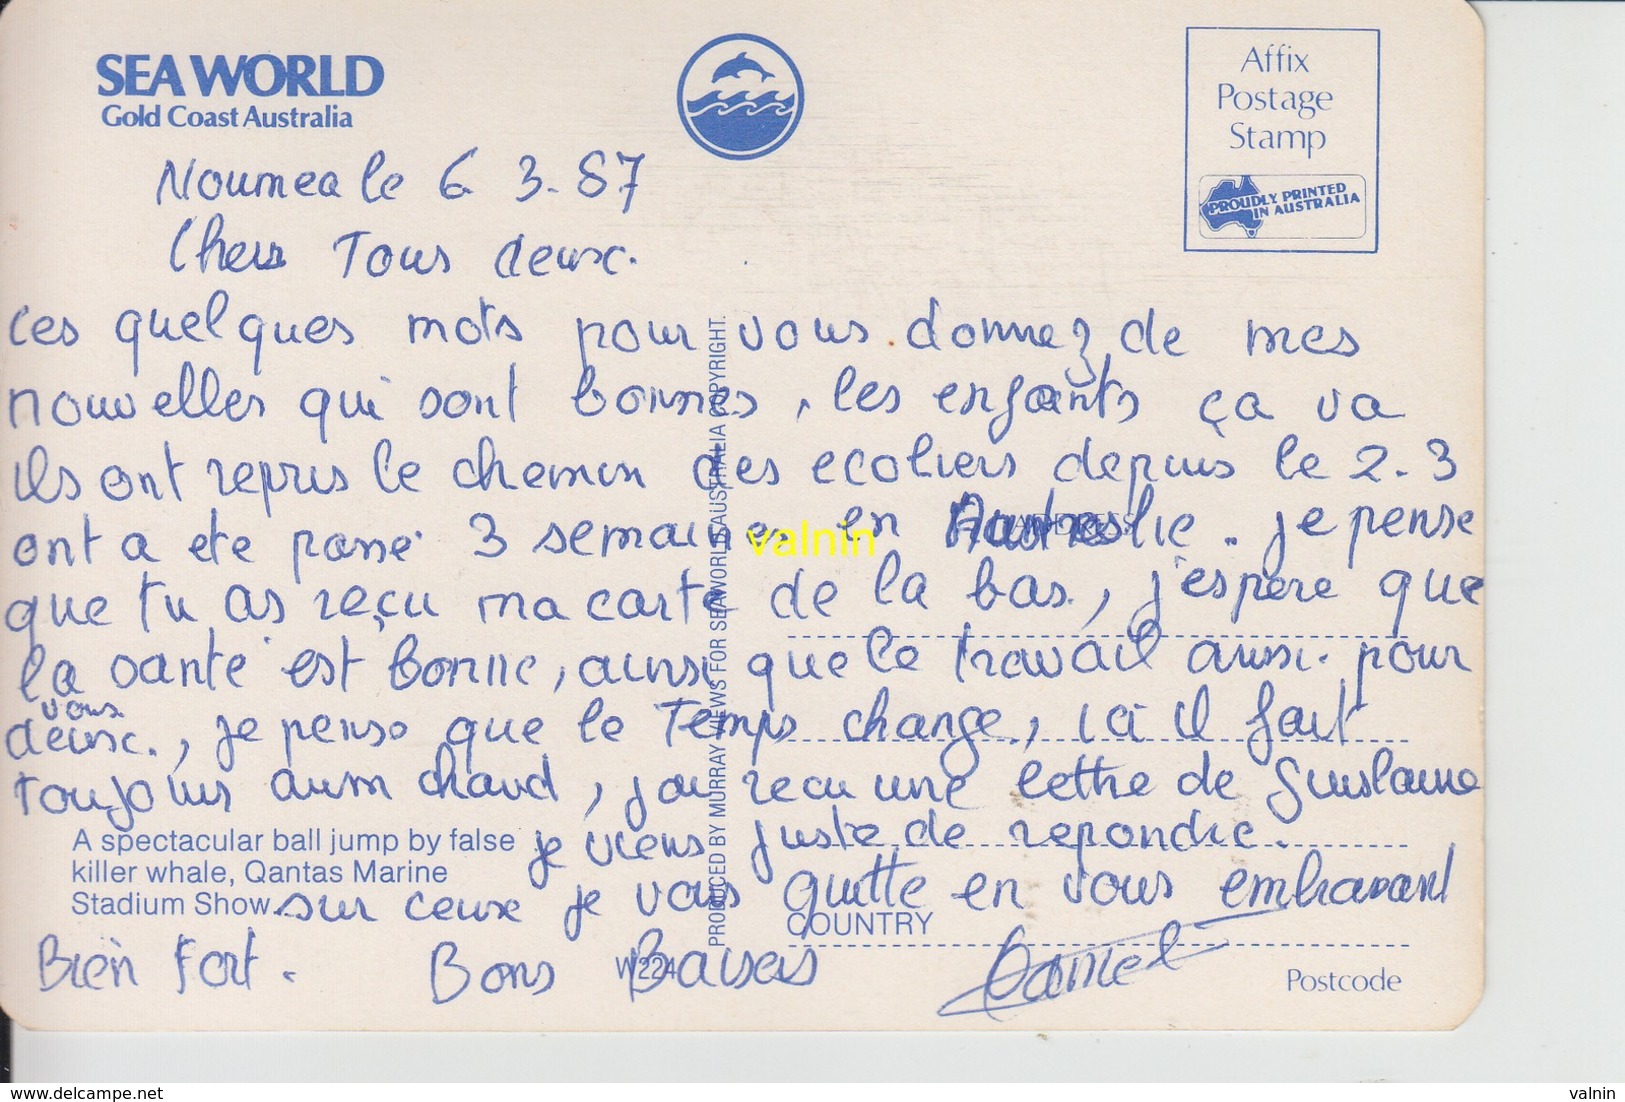 SEA WORLD
Gold Coast Australia
Affix
Postage
Stamp
PROUDLY PRINTED
IN AUSTRALIA
Noumea le 6 3.87
Chers Tous deux.
Ces quelques mots pour vous donnez de mes
nouvelles qui sont bonnes, les enfants ça va
ils ont repris le chemin des ecoliers depuis le 2-3
ont a ete passé 3 semaines en Australie. je pense
que tu as reçu ma carte de la bas, j'espere que
la santé est bonne, ainsi que le travail aussi pour
vous
deux., je pense que le Temps change, ici il fait
toujours aussi chaud, j'ai recu une lettre de Guislaine
A spectacular ball jump by false
killer whale, Qantas Marine
Stadium Show.
je viens juste de repondre.
sur ceux je vous quitte en vous embrassant
Bien Fort. Bons Baisers
PRODUCED BY MURRAY VIEWS FOR SEAWORLD AUSTRALIA COPYRIGHT.
W224
ADDRESS
COUNTRY
Postcode
valnin
delcampe.net
valnin